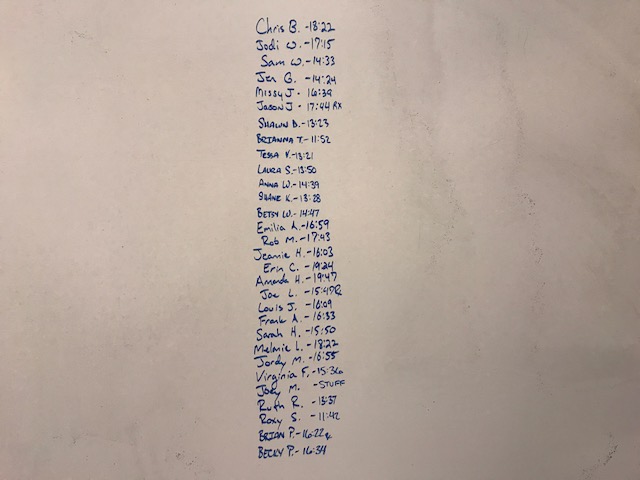 Chris B. - 13:22
Jodi W. - 17:15
Sam W. - 14:33
Jen G. - 14:24
Missy J - 16:39
Jason J - 17:44 RX
SHAWN D. - 13:23
BRIANNA T. - 11:52
TESSA V. - 13:21
LAURA S. - 13:50
ANNA W. - 14:39
SHANE K. - 13:28
BETSY W. - 14:47
Emilia A. - 16:59
Rob M. - 17:43
Jeannie H. - 16:03
Erin C. - 19:24
Amanda H. - 19:47
Joe L. - 15:47 Rx
Louis J. - 16:09
Frank A. - 16:33
Sarah H. - 15:50
Melanie L. - 18:22
Jordy M. - 16:55
Virginia F. - 15:36
Joey M. - STUFF
Ruth R. - 13:37
Roxy S. - 11:42
BRIAN P. - 16:22
BECKY P. - 16:34